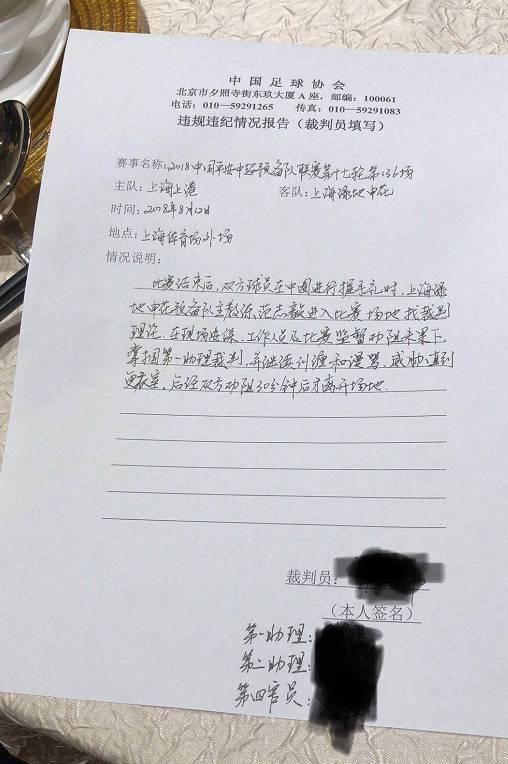 中国足球协会
北京市夕照寺街东玖大厦A座，邮编：100061
电话：010—59291265 传真：010—59291083
违规违纪情况报告（裁判员填写）
赛事名称：2018中国平安中超预备队联赛第十七轮第136场
主队：上海上港 客队：上海绿地申花
时间：2018年8月12日
地点：上海体育场外场
情况说明：
比赛结束后，双方球员在中圈进行握手礼时，上海绿
地申花预备队主教练范志毅进入比赛场地找裁判
理论，在现场安保、工作人员及比赛监督劝阻未果下，
掌掴第一助理裁判，并继续纠缠和漫骂，威胁直到
更衣室，后经双方劝阻30分钟后才离开场地.
裁判员：
（本人签名）
第一助理：
第二助理：
第四官员：